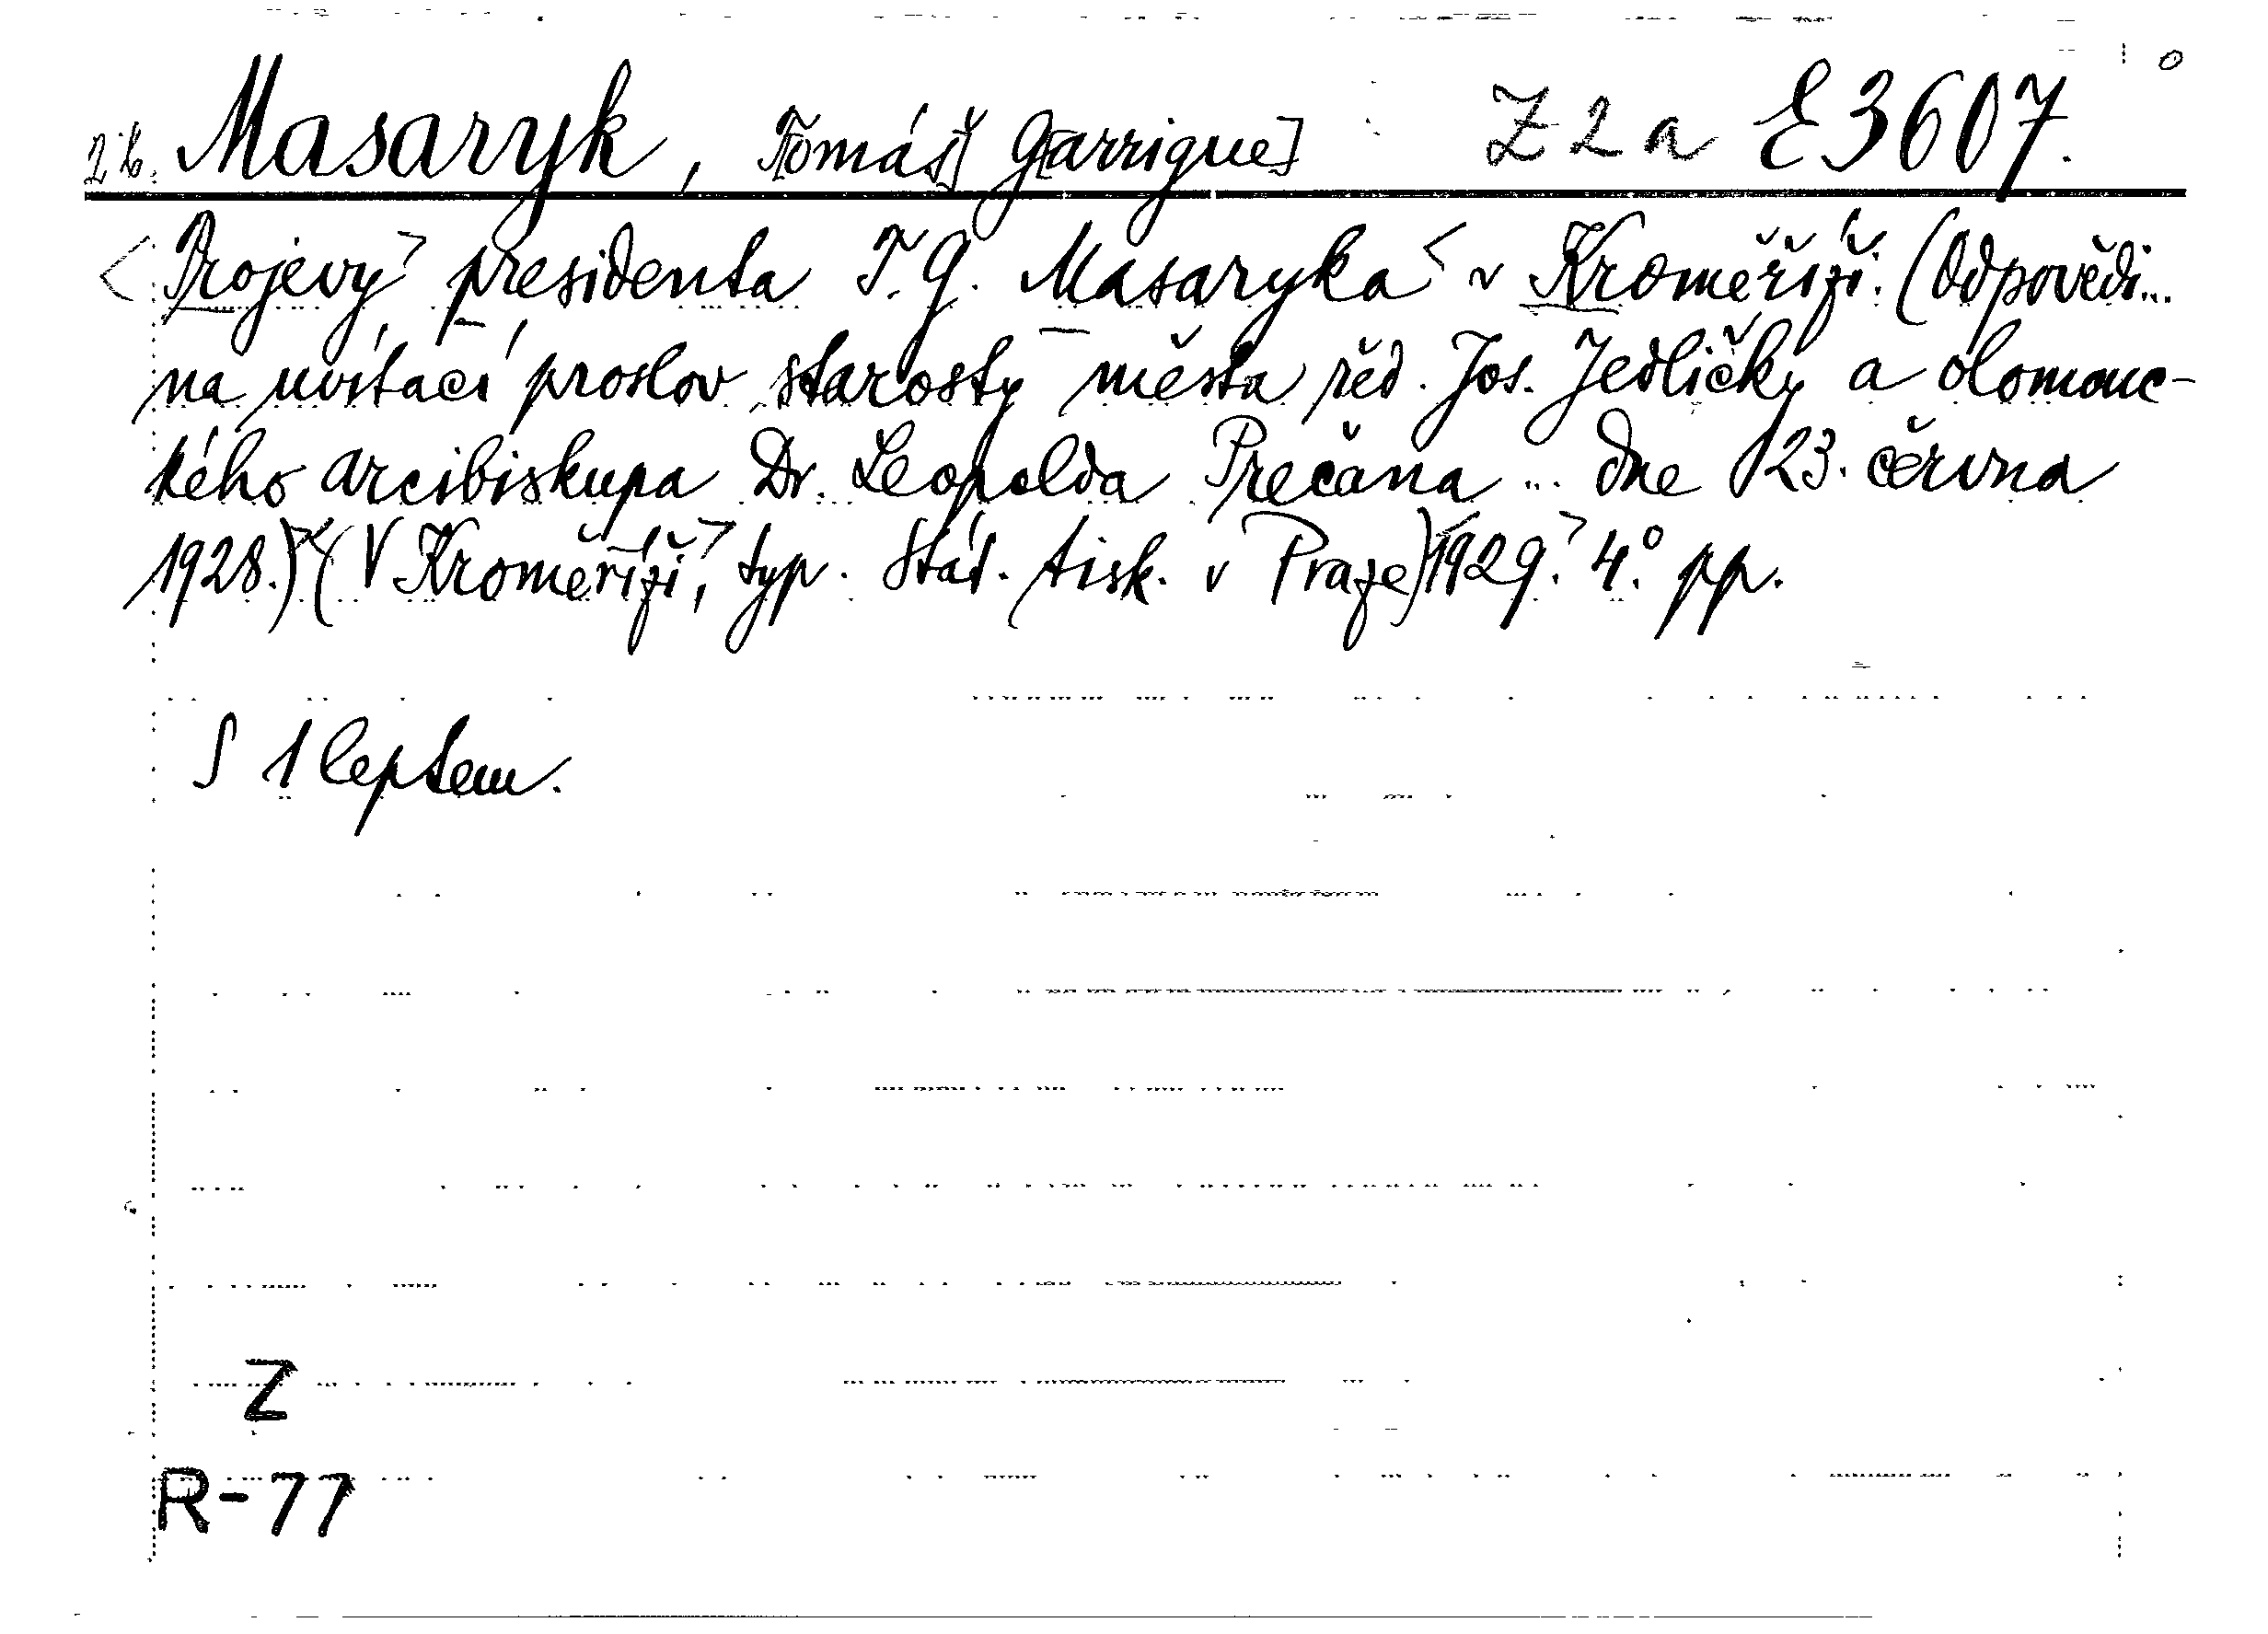 Masaryk, T[omáš] G[arrigue] Z 2 a E 3607.
<Projevy> presidenta T. G. Masaryka < v Kroměříži. (Odpovědi...
na uvítací proslov starosty města řed. Jos. Jedličky a olomouc-
kého arcibiskupa Dr. Leopolda Prečana ... dne 23. června
1928.)> (V Kroměříži>, typ. Stát. tisk. v Praze) <1929.> 4°. pp.
S 1 leptem.
Z
R-77